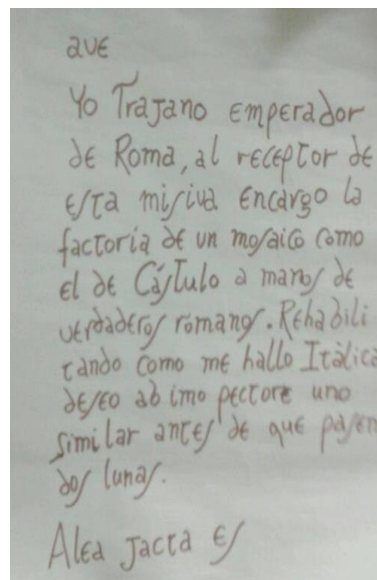 ave
Yo Trajano emperador
de Roma, al receptor de
esta misiva encargo la
factoria de un mosaico como
el de Cástulo a manos de
verdaderos romanos. Rehabili
tando como me hallo Itálica
deseo ab imo pectore uno
similar antes de que pasen
dos lunas.
Alea Jacta es